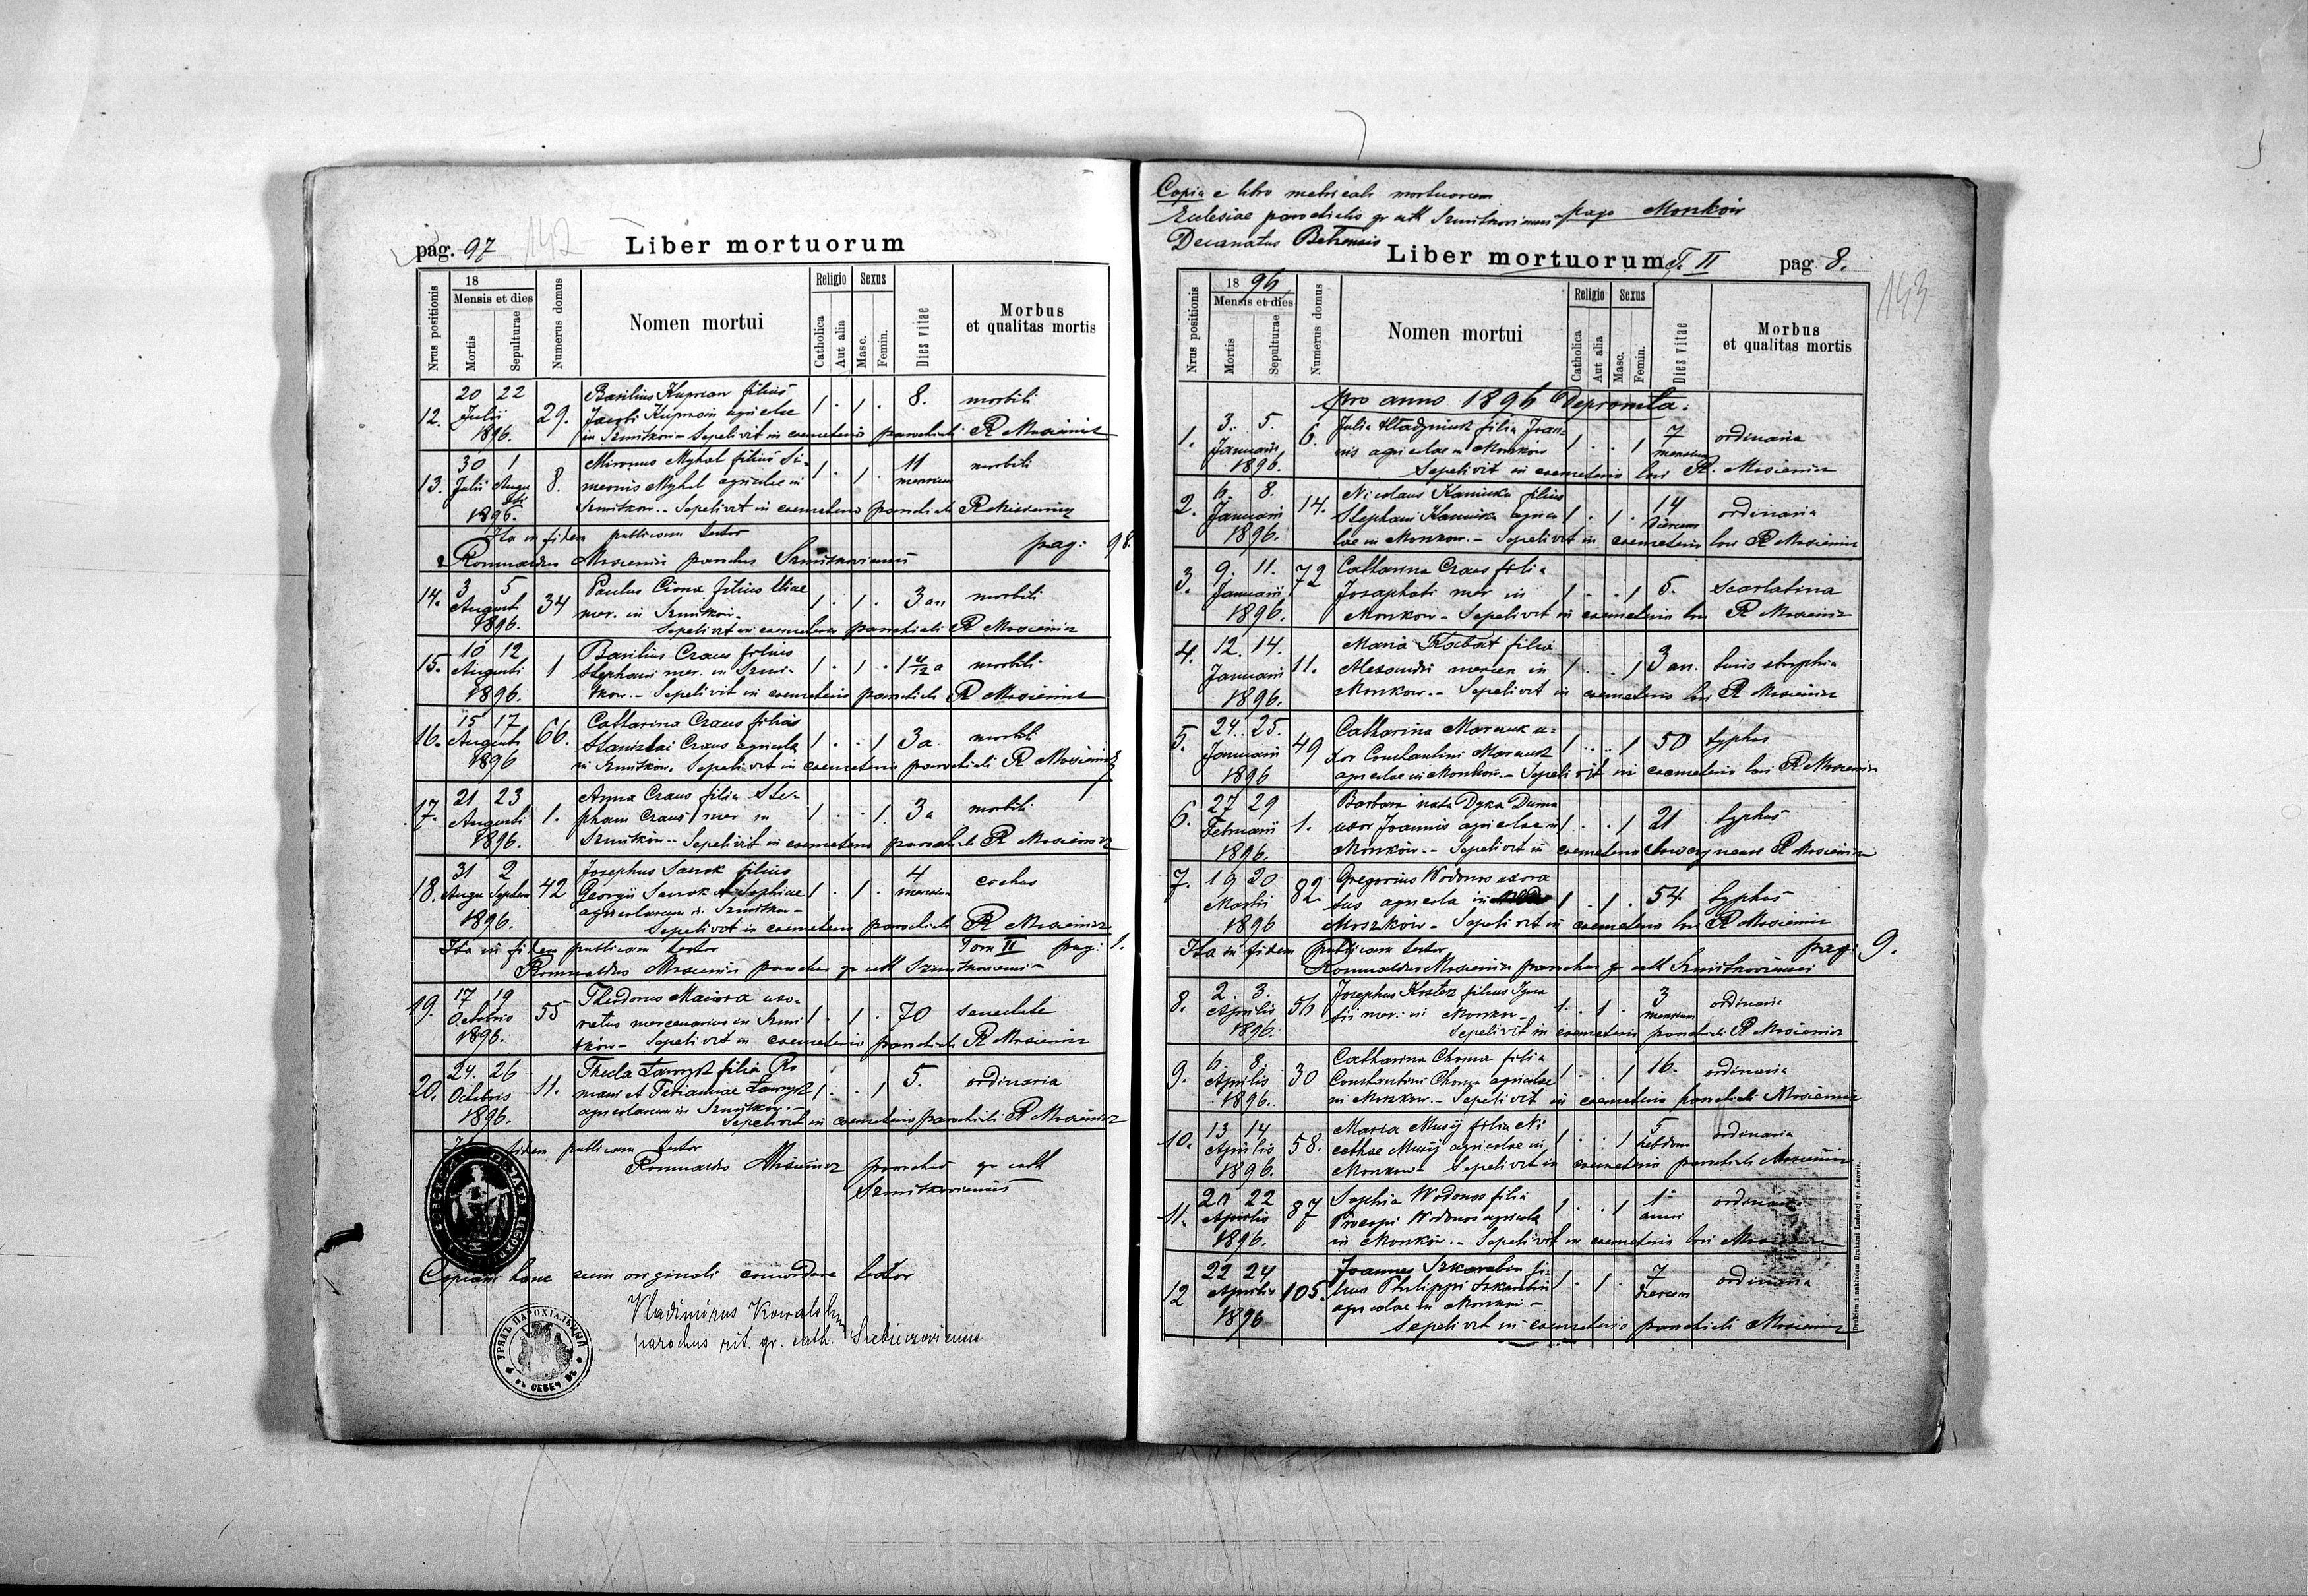 pag. 97
142
Liber mortuorum
Nrus positionis
18
Mensis et dies
Mortis
Sepulturae
Numerus domus
Nomen mortui
Religio
Catholica
Aut alia
Sexus
Masc.
Femin.
Dies vitae
Morbus
et qualitas mortis
12. 20 22 Julii 1896. 29.
Basilius Kuprian filius
Jacobi agricolae
in Szmitkow - Sepelivit in coemeterio parochiali R Mosiewicz
1 . 1 . 8. morbili
13. 30 1 Julii Augusti 1896. 8.
Myhal filius Si-
meonis Myhal agricolae in
Szmitkow. - Sepelivit in coemeterio parochiali R Mosiewicz
1 . 1 . 11 mensium morbili
Ita in fidem publicam testor
pag: 98.
Romualdus Mosiewicz parochus Szmitkoviensis
14. 3 5 Augusti 1896. 34
Paulus filius Eliae
mer. in Szmitkow.
Sepelivit in coemeterio parochiali R Mosiewicz
1 . 1 . 3 an morbili
15. 10 12 Augusti 1896. 1
Basilius Craus filius
Stephani mer. in Szmi-
tkow. - Sepelivit in coemeterio parochiali R Mosiewicz
1 . 1 . morbili
16. 15 17 Augusti 1896 66.
Catharina Craus filia
Stanislai Craus agricola
in Szmitkow. Sepelivit in coemeterio parochiali R Mosiewicz
1 . . 1 3 a. morbili
17. 21 23 Augusti 1896. 1.
Anna Craus filia Ste-
phani Craus mer in
Szmitkow - Sepelivit in coemeterio parochiali R Mosiewicz
1 . . 1. 3 a morbili
18. 31 2 1896. 42
Josephus filius
Georgii et Sophiae
agricolarum in Szmitkow -
Sepelivit in coemeterio parochiali R Mosiewicz
1 . 1 . 4
Ita in fidem publicam testor Tom II pag: 1.
Romualdus Mosiewicz parochus gr cath Szmitkoviensis
19. 17 19 Octobris 1896. 55
Theodorus uxo-
ratus mercenarius in Szmi
tkow - Sepelivit in coemeterio parochiali R Mosiewicz
1 . 1 . 70 senectute
20. 24. 26 Octobris 1896. 11.
Thecla filia Ro
mani et
agricolarum in Szmitkow. -
Sepelivit in coemeterio parochiali R Mosiewicz
1 . . 1 5. ordinaria
fidem publicam testor
Romualdus Mosiewicz parochus gr cath
Szmitkoviensis
Copiam hanc cum originali concordare testor
Vladimirus Kowalski
parochus rit. gr. cath.
УРЯДЪ ПАРОХІАЛЬНЫЙ
Copia e libro metricali mortuorum
Ecclesiae parochialis gr cath Szmitkoviensis pago Monkow
Decanatus Belzensis
Liber mortuorum T. II
pag 8.
143
Nrus positionis
18 96
Mensis et dies
Mortis
Sepulturae
Numerus domus
Nomen mortui
Religio
Catholica
Aut alia
Sexus
Masc.
Femin.
Dies vitae
Morbus
et qualitas mortis
pro anno 1896 Deprompta.
1. 3. 5. Januarii 1896. 6.
Julia filia Joan-
nis agricolae in Monkow
Sepelivit in coemeterio loci R. Mosiewicz
1 . . 1 7 mensium ordinaria
2. 6. 8. Januarii 1896. 14.
Nicolaus filius
Stephani agrico
lae in Monkow. - Sepelivit in coemeterio loci R Mosiewicz
1 . 1 . 14 dierum ordinaria
3. 9. 11. Januarii 1896. 72
Catharina Craus filia
Josaphati mer in
Monkow - Sepelivit in coemeterio loci R Mosiewicz
1 . . 1 5. scarlatina
4. 12. 14. Januarii 1896. 11.
Maria filia
Alexandri mercen in
Monkow. - Sepelivit in coemeterio loci R Mosiewicz
1 . . 1 3 an.
5. 24. 25. Januarii 1896 49
Catharina Marczuk u-
xor Constantini Marczuk
agricolae in Monkow. - Sepelivit in coemeterio loci R Mosiewicz
1 . . 1 50 typhus
6. 27 29 Februarii 1896. 1.
Barbara nata Dyka Duma
uxor Joannis agricolae in
Monkow. - Sepelivit in coemeterio R Mosiewicz
1 . . 1 21 typhus
7. 19 20 Martii 1896 82
Gregorius Wodonos uxora
tus agricola in
Moszkow - Sepelivit in coemeterio loci R Mosiewicz
1 . 1 . 54 typhus
Ita in fidem publicam testor pag: 9.
Romualdus Mosiewicz parochus gr cath Szmitkoviensis
8. 2. 3. Aprilis 1896. 56
Josephus filius Igna
tii mer. in Monkow -
Sepelivit in coemeterio parochiali R Mosiewicz
1. . 1 . 3 mensium ordinaria
9. 6. 8. Aprilis 1896. 30
Catharina Choma filia
Constantini Choma agricolae
in Monkow. - Sepelivit in coemeterio parochiali Mosiewicz
1 . . 1 16. ordinaria
10. 13 14 Aprilis 1896. 58.
Maria Musij filia Ni
cetae Musij agricolae in
Monkow - Sepelivit in coemeterio parochiali Mosiewicz
1 . . 1 5 hebdom ordinaria
11. 22 Aprilis 1896. 87
Sophia Wodonos filia
Procopi Wodonos agricola
in Monkow. - Sepelivit in coemeterio loci Mosiewicz
1 . . 1 1 anni ordinaria
12 22 24 Aprilis 1896 105.
Joannes fi-
lius Philippi
agricolae in Monkow -
Sepelivit in coemeterio parochiali Mosiewicz
1 . 1 . 7 dierum ordinaria
Drukiem i nakładem Drukarni Ludowej we Lwowie.